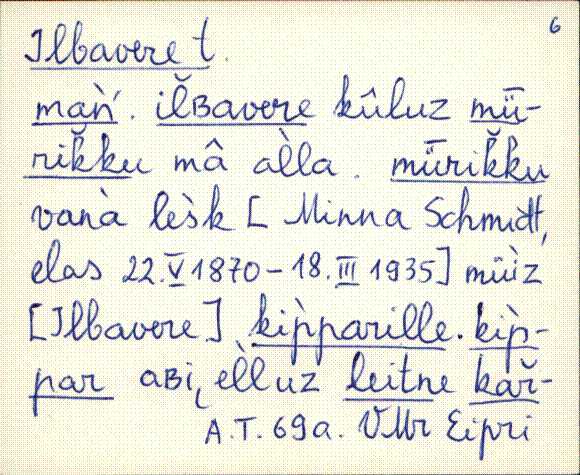 6
Ilbavere t.
mаǹ. ilʙavere kûluz mǖ-
rikku mâ alla. mǖrikku
vanà lèsk [Minna Schmidt,
elas 22.V 1870–18.III 1935] müiz
[Ilbavere] kìpparille. kìp-
par aʙi, èlluz leitne kař-
A.T. 69a. VMr Eipri